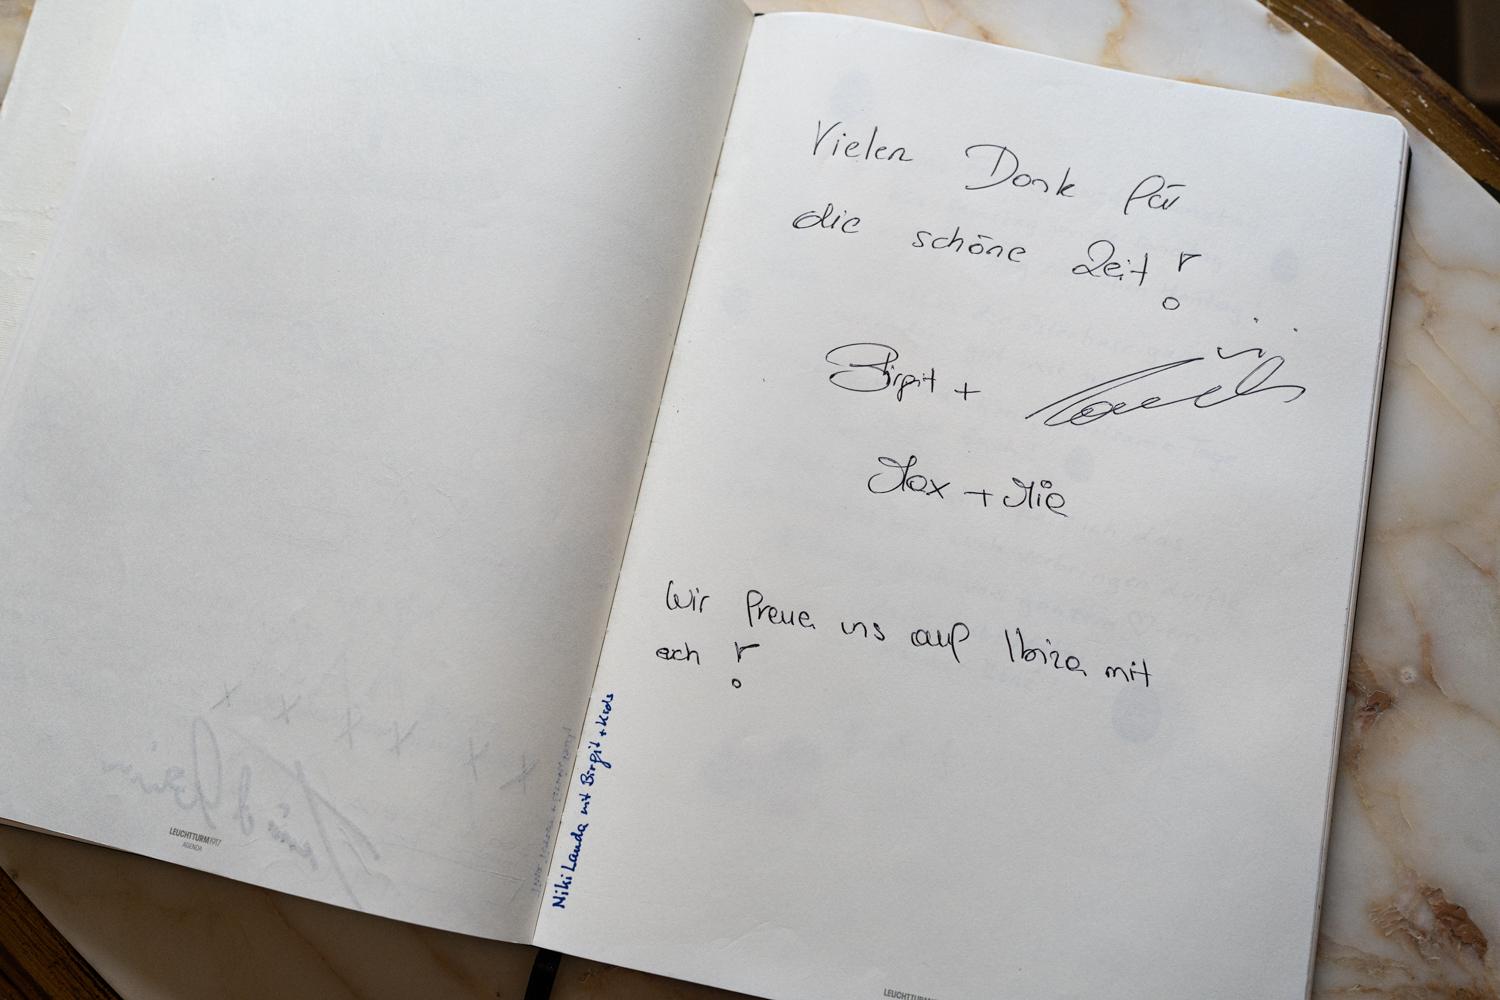 Vielen Dank für
die schöne Zeit!
Birgit +
Max + Mia
Wir freuen uns auf Ibiza mit
euch!
Niki Lauda mit Birgit + Kids
LEUCHTTURM1917
AGENDA
LEUCHTTURM